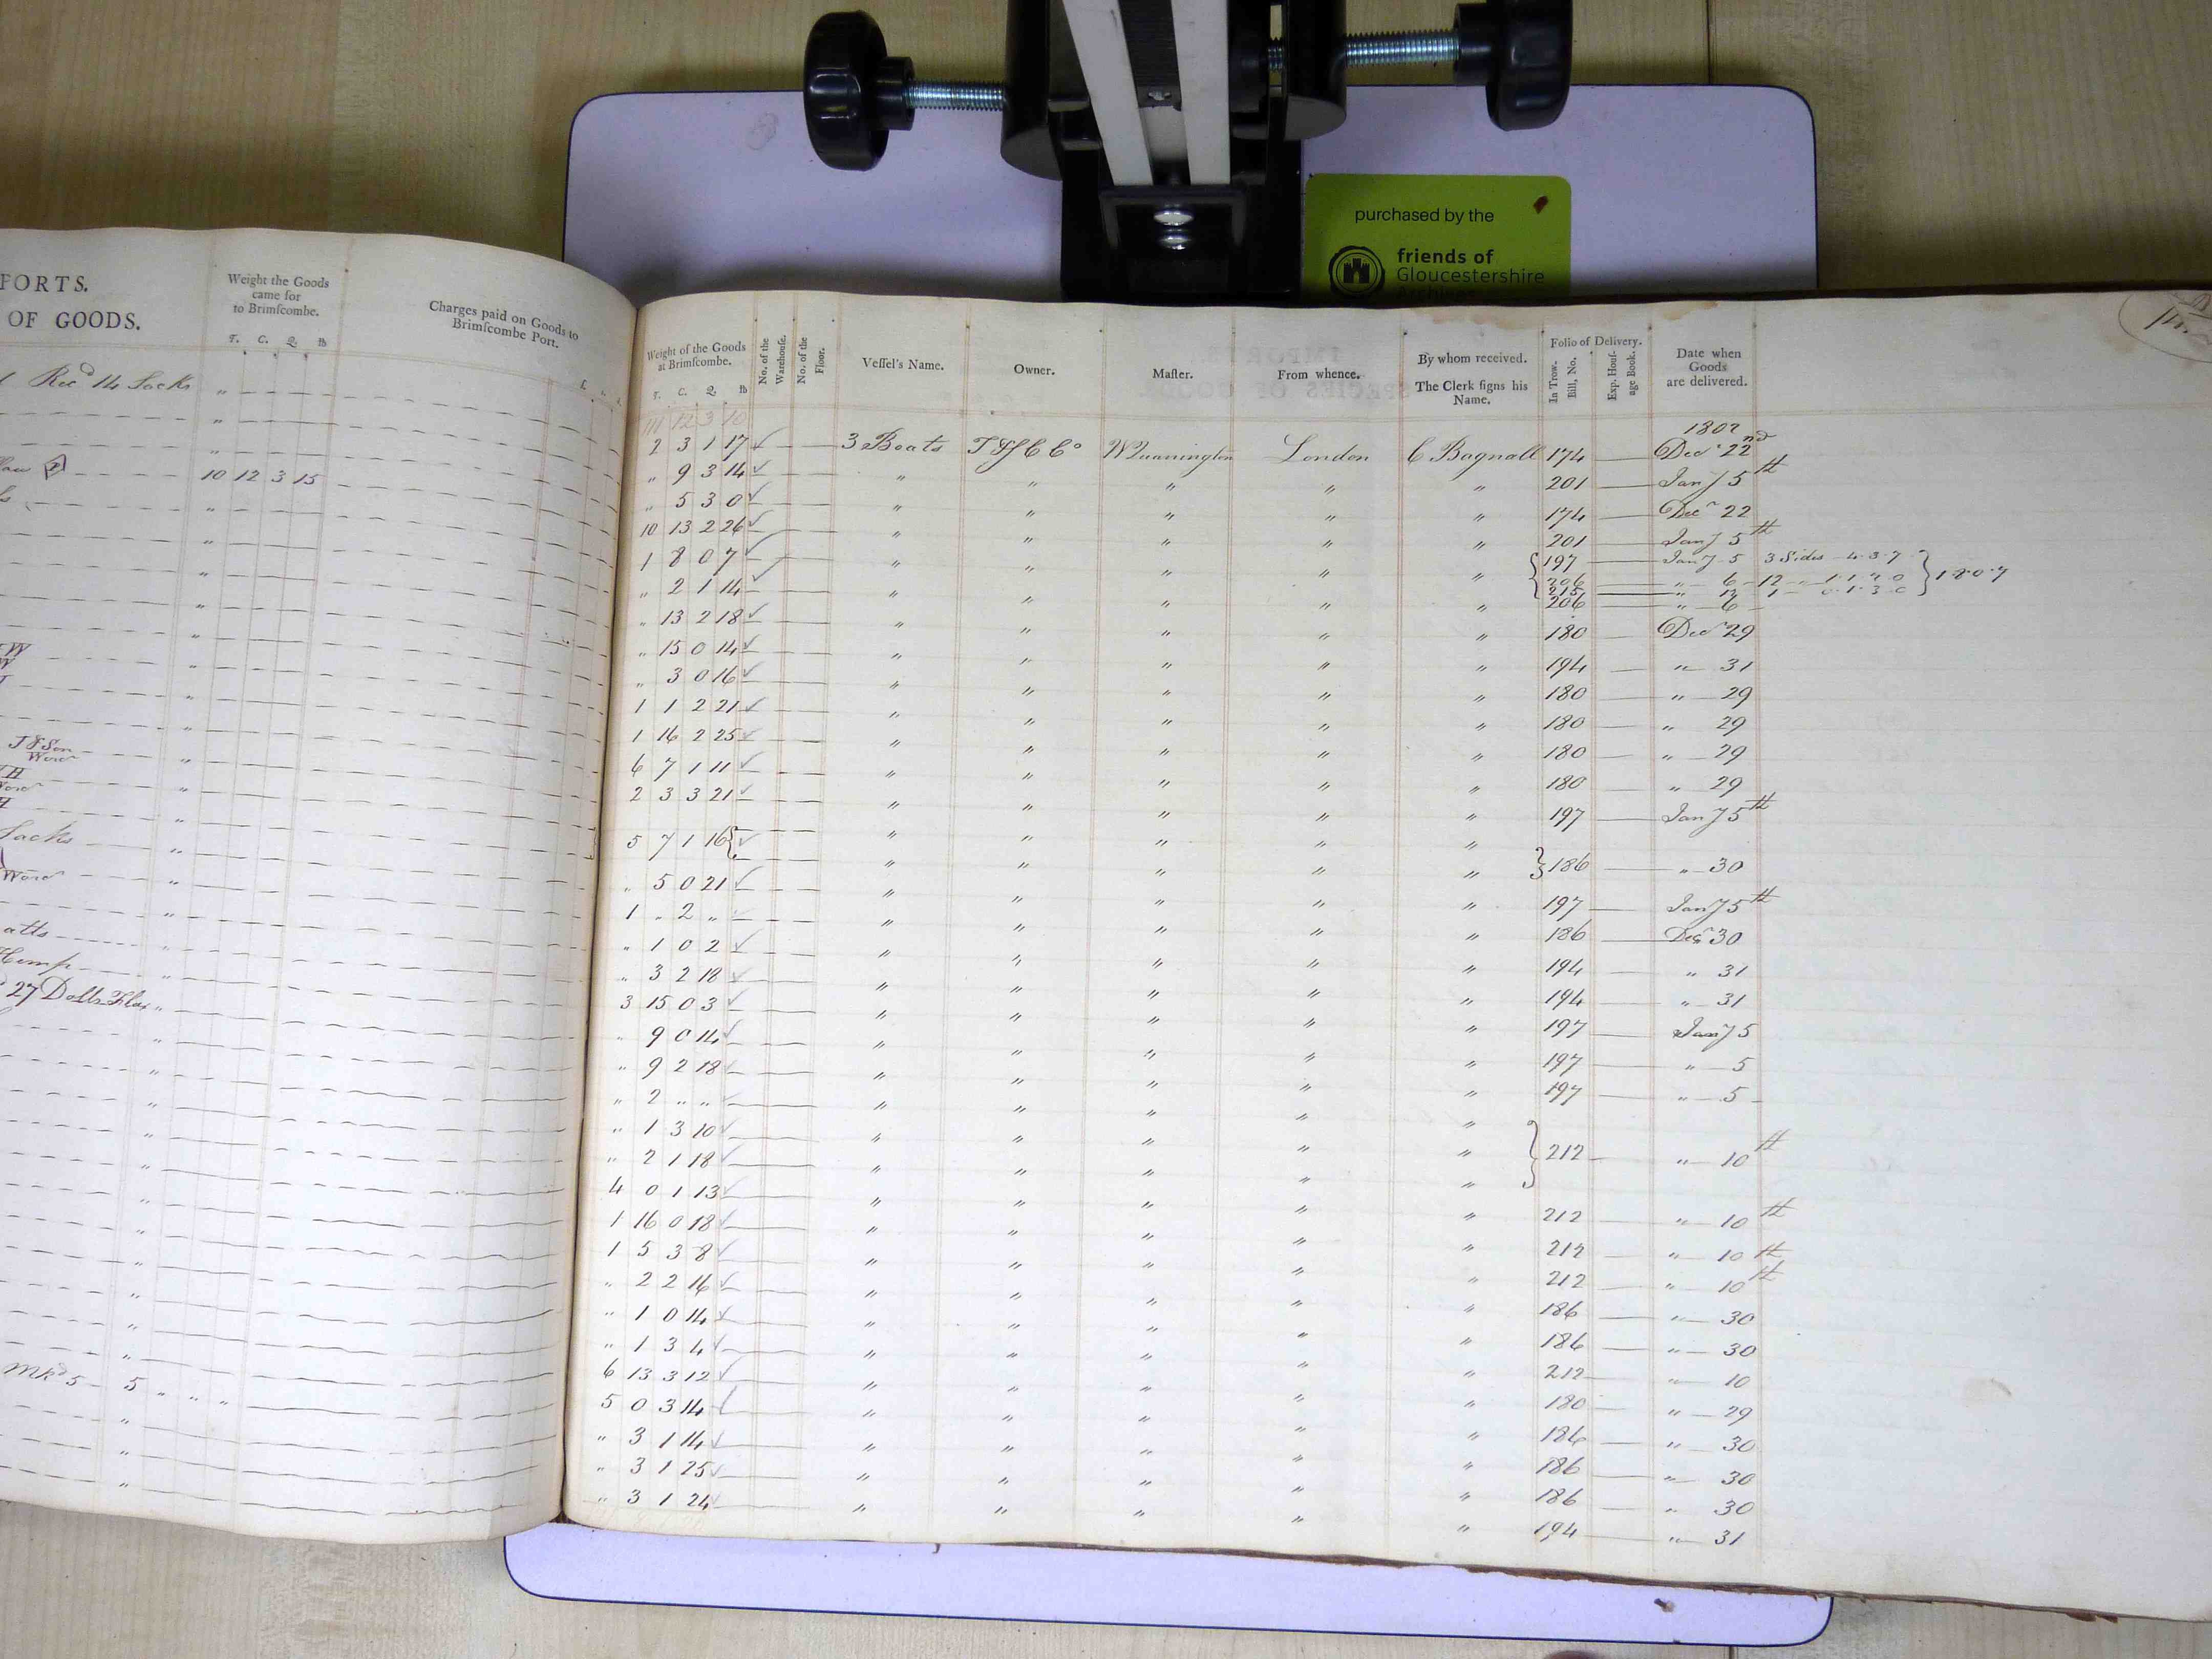 purchased by the
friends of
Gloucestershire
FORTS.
OF GOODS.
Weight the Goods
came for
to Brimſcombe.
T. C. Q. lb
Charges paid on Goods to
Brimſcombe Port.
Recd 14 Sacks
10 12 3 15
J & Son
Sacks
Hemp
27 Dolls Flax "
Mkd 5 5 " " "
Weight of the Goods
at Brimſcombe.
T. C. Q. lb
No. of the
Warehouſe.
No. of the
Floor.
Veſſel's Name.
Owner.
Maſter.
From whence.
By whom received.
The Clerk ſigns his
Name.
Folio of Delivery.
In Trow.
Bill, No.
Exp. Houſ-
age Book.
Date when
Goods
are delivered.
111 12 3 10
1802
2 3 1 17 3 Boats London C Bagnall 174 Decr 22nd
" 9 3 14 " " " " " 201 Jany 5th
" 5 3 0 " " " " " 174 Decr 22
10 13 2 26 " " " " " 201 Jany 5th
1 8 0 7 " " " " " 197 Jany 5 3 Sides 4.3.7
206 " 6 12 1 8 0 7
215
" 2 1 14 " " " " " 206 " 6
" 13 2 18 " " " " " 180 Decr 29
" 15 0 14 " " " " " 194 " 31
" 3 0 16 " " " " " 180 " 29
1 1 2 21 " " " " " 180 " 29
1 16 2 25 " " " " " 180 " 29
6 7 1 11 " " " " " 180 " 29
2 3 3 21 " " " " " 197 Jany 5th
5 7 1 16 " " " " " 186 " 30
" 5 0 21 " " " " " 197 Jany 5th
1 " 2 " " " " " " 186 Decr 30
" 1 0 2 " " " " " 194 " 31
" 3 2 18 " " " " " 194 " 31
3 15 0 3 " " " " " 197 Jany 5
" 9 0 14 " " " " " 197 " 5
" 9 2 18 " " " " " 197 " 5
" 2 " " " " " " "
" 1 3 10 " " " " " 212 " 10th
" 2 1 18 " " " " "
4 0 1 13 " " " " " 212 " 10th
1 16 0 18 " " " " " 212 " 10th
1 5 3 8 " " " " " 212 " 10th
" 2 2 16 " " " " " 186 " 30
" 1 0 14 " " " " " 186 " 30
" 1 3 4 " " " " " 212 " 10
6 13 3 12 " " " " " 180 " 29
5 0 3 14 " " " " " 186 " 30
" 3 1 14 " " " " " 186 " 30
" 3 1 25 " " " " " 186 " 30
" 3 1 24 " " " " " 194 " 31